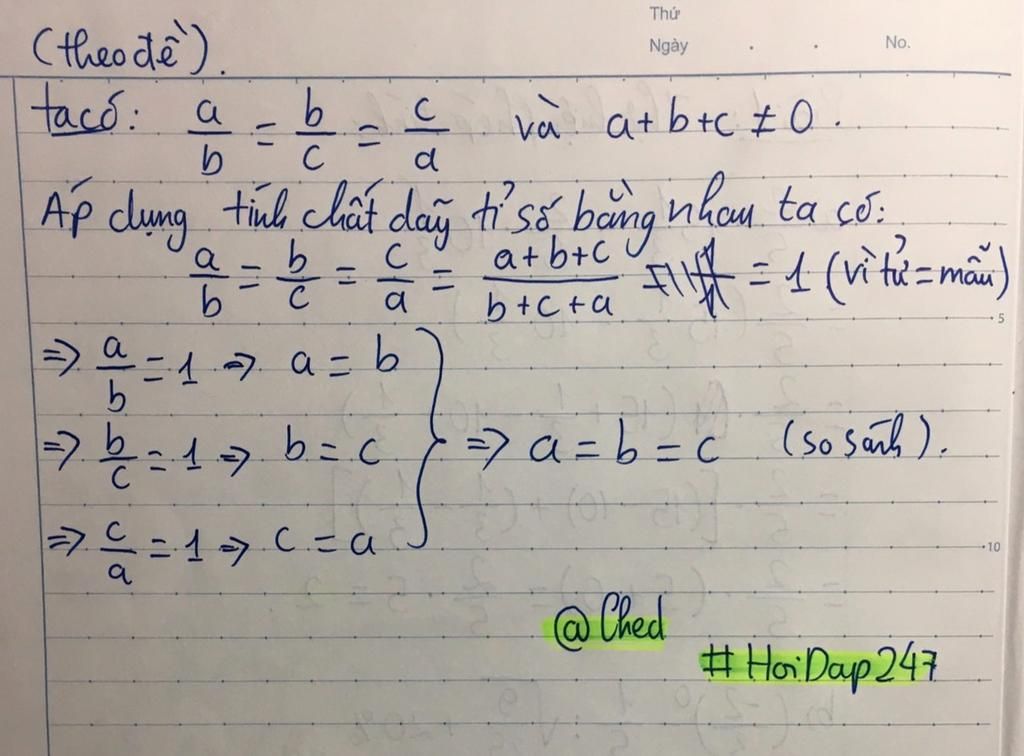 Thứ
Ngày . . No.
(theo đề).
ta có: a/b = b/c = c/a và a+b+c ≠ 0.
Áp dụng tính chất dãy tỉ số bằng nhau ta có:
a/b = b/c = c/a = (a+b+c)/(b+c+a) = 1 (vì tử = mẫu)
5
=> a/b = 1 => a = b
=> b/c = 1 => b = c => a = b = c (so sánh).
=> c/a = 1 => c = a
10
@Ched
#HoiDap247